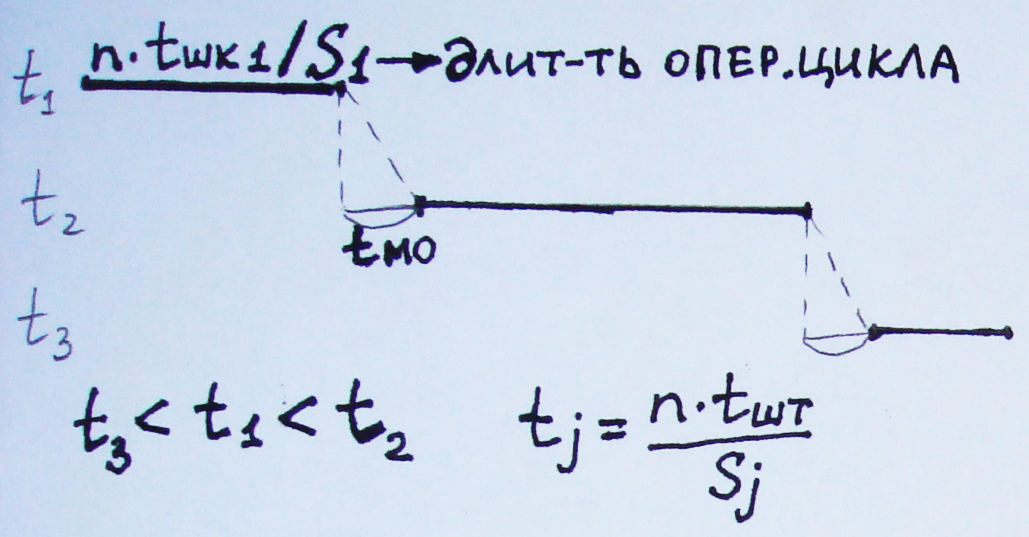 t₁ n·tшк1/S₁→длит-ть опер.цикла
t₂
tмо
t₃
t₃ < t₁ < t₂ tj = n·tшт / Sj